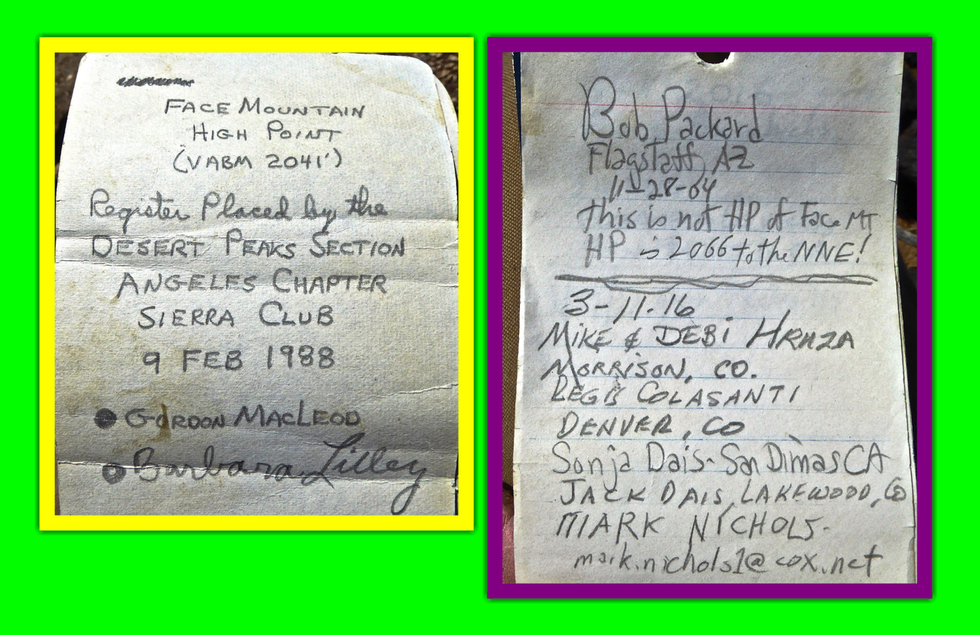 FACE MOUNTAIN
HIGH POINT
(VABM 2041')
Register Placed by the
DESERT PEAKS SECTION
ANGELES CHAPTER
SIERRA CLUB
9 FEB 1988
GORDON MACLEOD
Barbara Lilley
Bob Packard
Flagstaff, AZ
11-28-04
This is not HP of Face MT
HP is 2066 to the NNE!
3-11-16
MIKE & DEBi HRNZA
MORRISON, CO.
COLASANTI
DENVER, CO
Sonja Dais-San Dimas CA
JACK DAIS, LAKEWOOD, CO
MARK NICHOLS-
mark.nichols1@cox.net